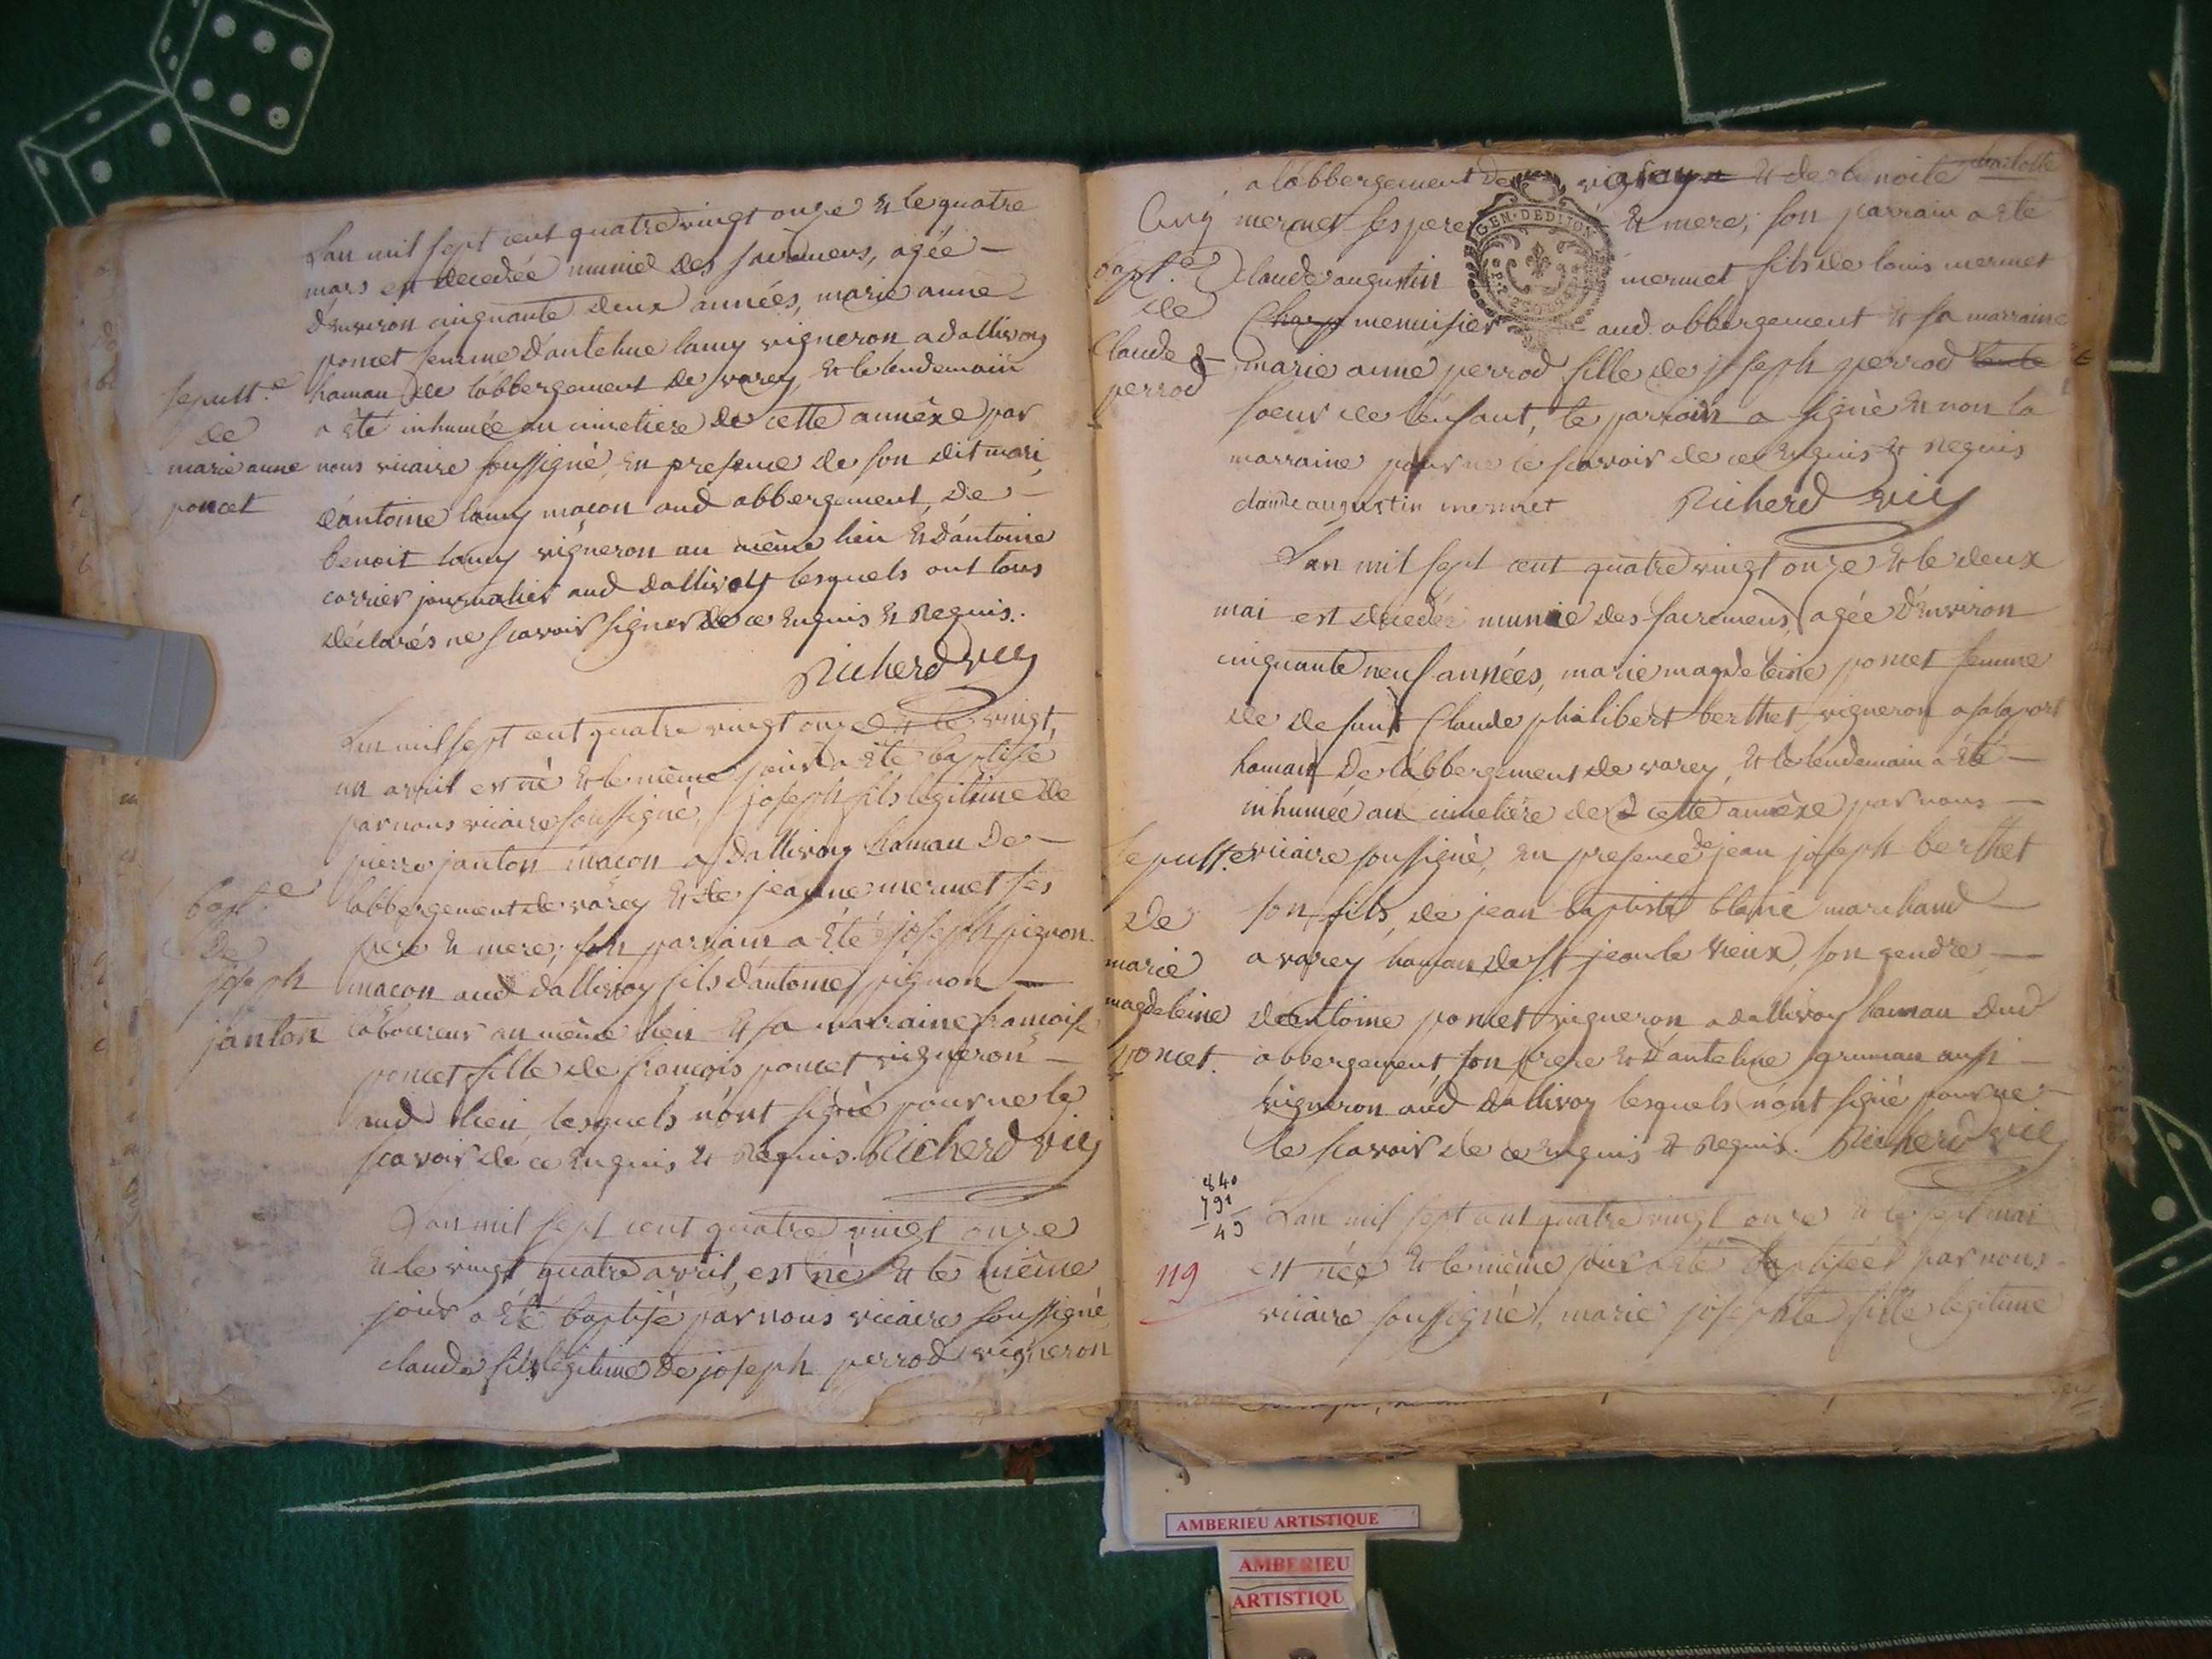 Lan mil sept cent quatre vingt onze & le quatre
mars est decedée munie des sacremens, agée
d'environ cinquante deux années, marie anne
poncet femme d'antelme lamy vigneron a dallivoy
hamau de l'abbergement de varey, & le lendemain
a été inhumée au cimetiere de cette annèxe par
nous vicaire soussigné, en presence de son dit mari,
d'antoine lamy maçon aud abbergement, de
benoit lamy vigneron au même lieu & d'antoine
carrier journalier aud dallivoy lesquels ont tous
déclarés ne scavoir signer de ce enquis & requis.
Richerd vic
sepult.e
de
marie anne
poncet
Lan mil sept cent quatre vingt onze & le vingt
un avril est né & le même jour a été baptisé
par nous vicaire soussigné, joseph fils légitime de
pierre janton maçon a dallivoy hamau de
l'abbergement de varey & de jeanne mermet ses
pere & mere; son parrain a été joseph pignon
macon aud dallivoy fils d'antoine pignon
laboureur au même lieu & sa marraine francoise
poncet fille de francois poncet vigneron
aud lieu, lesquels n'ont signé pour ne le
scavoir de ce enquis & requis. Richerd vic
bapt.e
de
joseph
janton
Lan mil sept cent quatre vingt onze
& le vingt quatre avril, est né & le même
jour a été baptisé par nous vicaire soussigné
claude fils légitime de joseph perrod vigneron
a l'abbergement de & de benoite
mermet ses pere & mere; son parrain a été
claude augustin mermet fils de louis mermet
menuisier aud abbergement & sa marraine
marie anne perrod fille de joseph perrod
soeur de l'enfant, le parrain a signé & non la
marraine pour ne le scavoir de ce enquis & requis
claude augustin mermet Richerd vic
bapt.e
de
claude
perrod
GEN. DE DIJON
Lan mil sept cent quatre vingt onze & le deux
mai est decedée munie des sacremens, agée d'environ
cinquante neuf années, marie magdeleine poncet femme
de defunt Claude philibert berthet vigneron a salaport
hamau de l'abbergement de varey, & le lendemain a été
inhumée au cimetière de cette annèxe par nous
vicaire soussigné, en presence de jean joseph berthet
son fils, de jean baptiste blanc marchand
a varey hamau de st jean le vieux, son gendre
d'antoine poncet vigneron a dallivoy hamau dud
abbergement, son frere & d'antelme gruman aussi
vigneron aud dallivoy lesquels n'ont signé pour ne
le scavoir de ce enquis & requis. Richerd vic
sepult.e
de
marie
magdeleine
poncet.
840
791
49
119
Lan mil sept cent quatre vingt onze & le sept mai
est née & le même jour a été baptisée par nous
vicaire soussigné, marie josephte fille legitime
AMBERIEU ARTISTIQUE
AMBERIEU
ARTISTIQU